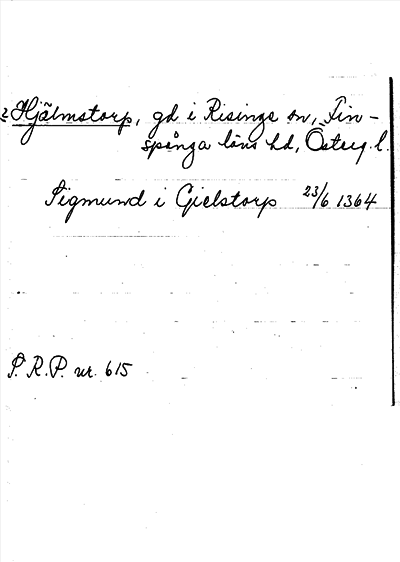 Hjälmstorp, gd i Risinge sn, Fin-
spånga läns hd, Österg. l.
Sigmund i Gielstorp 23/6 1364
S. R. P. nr. 615